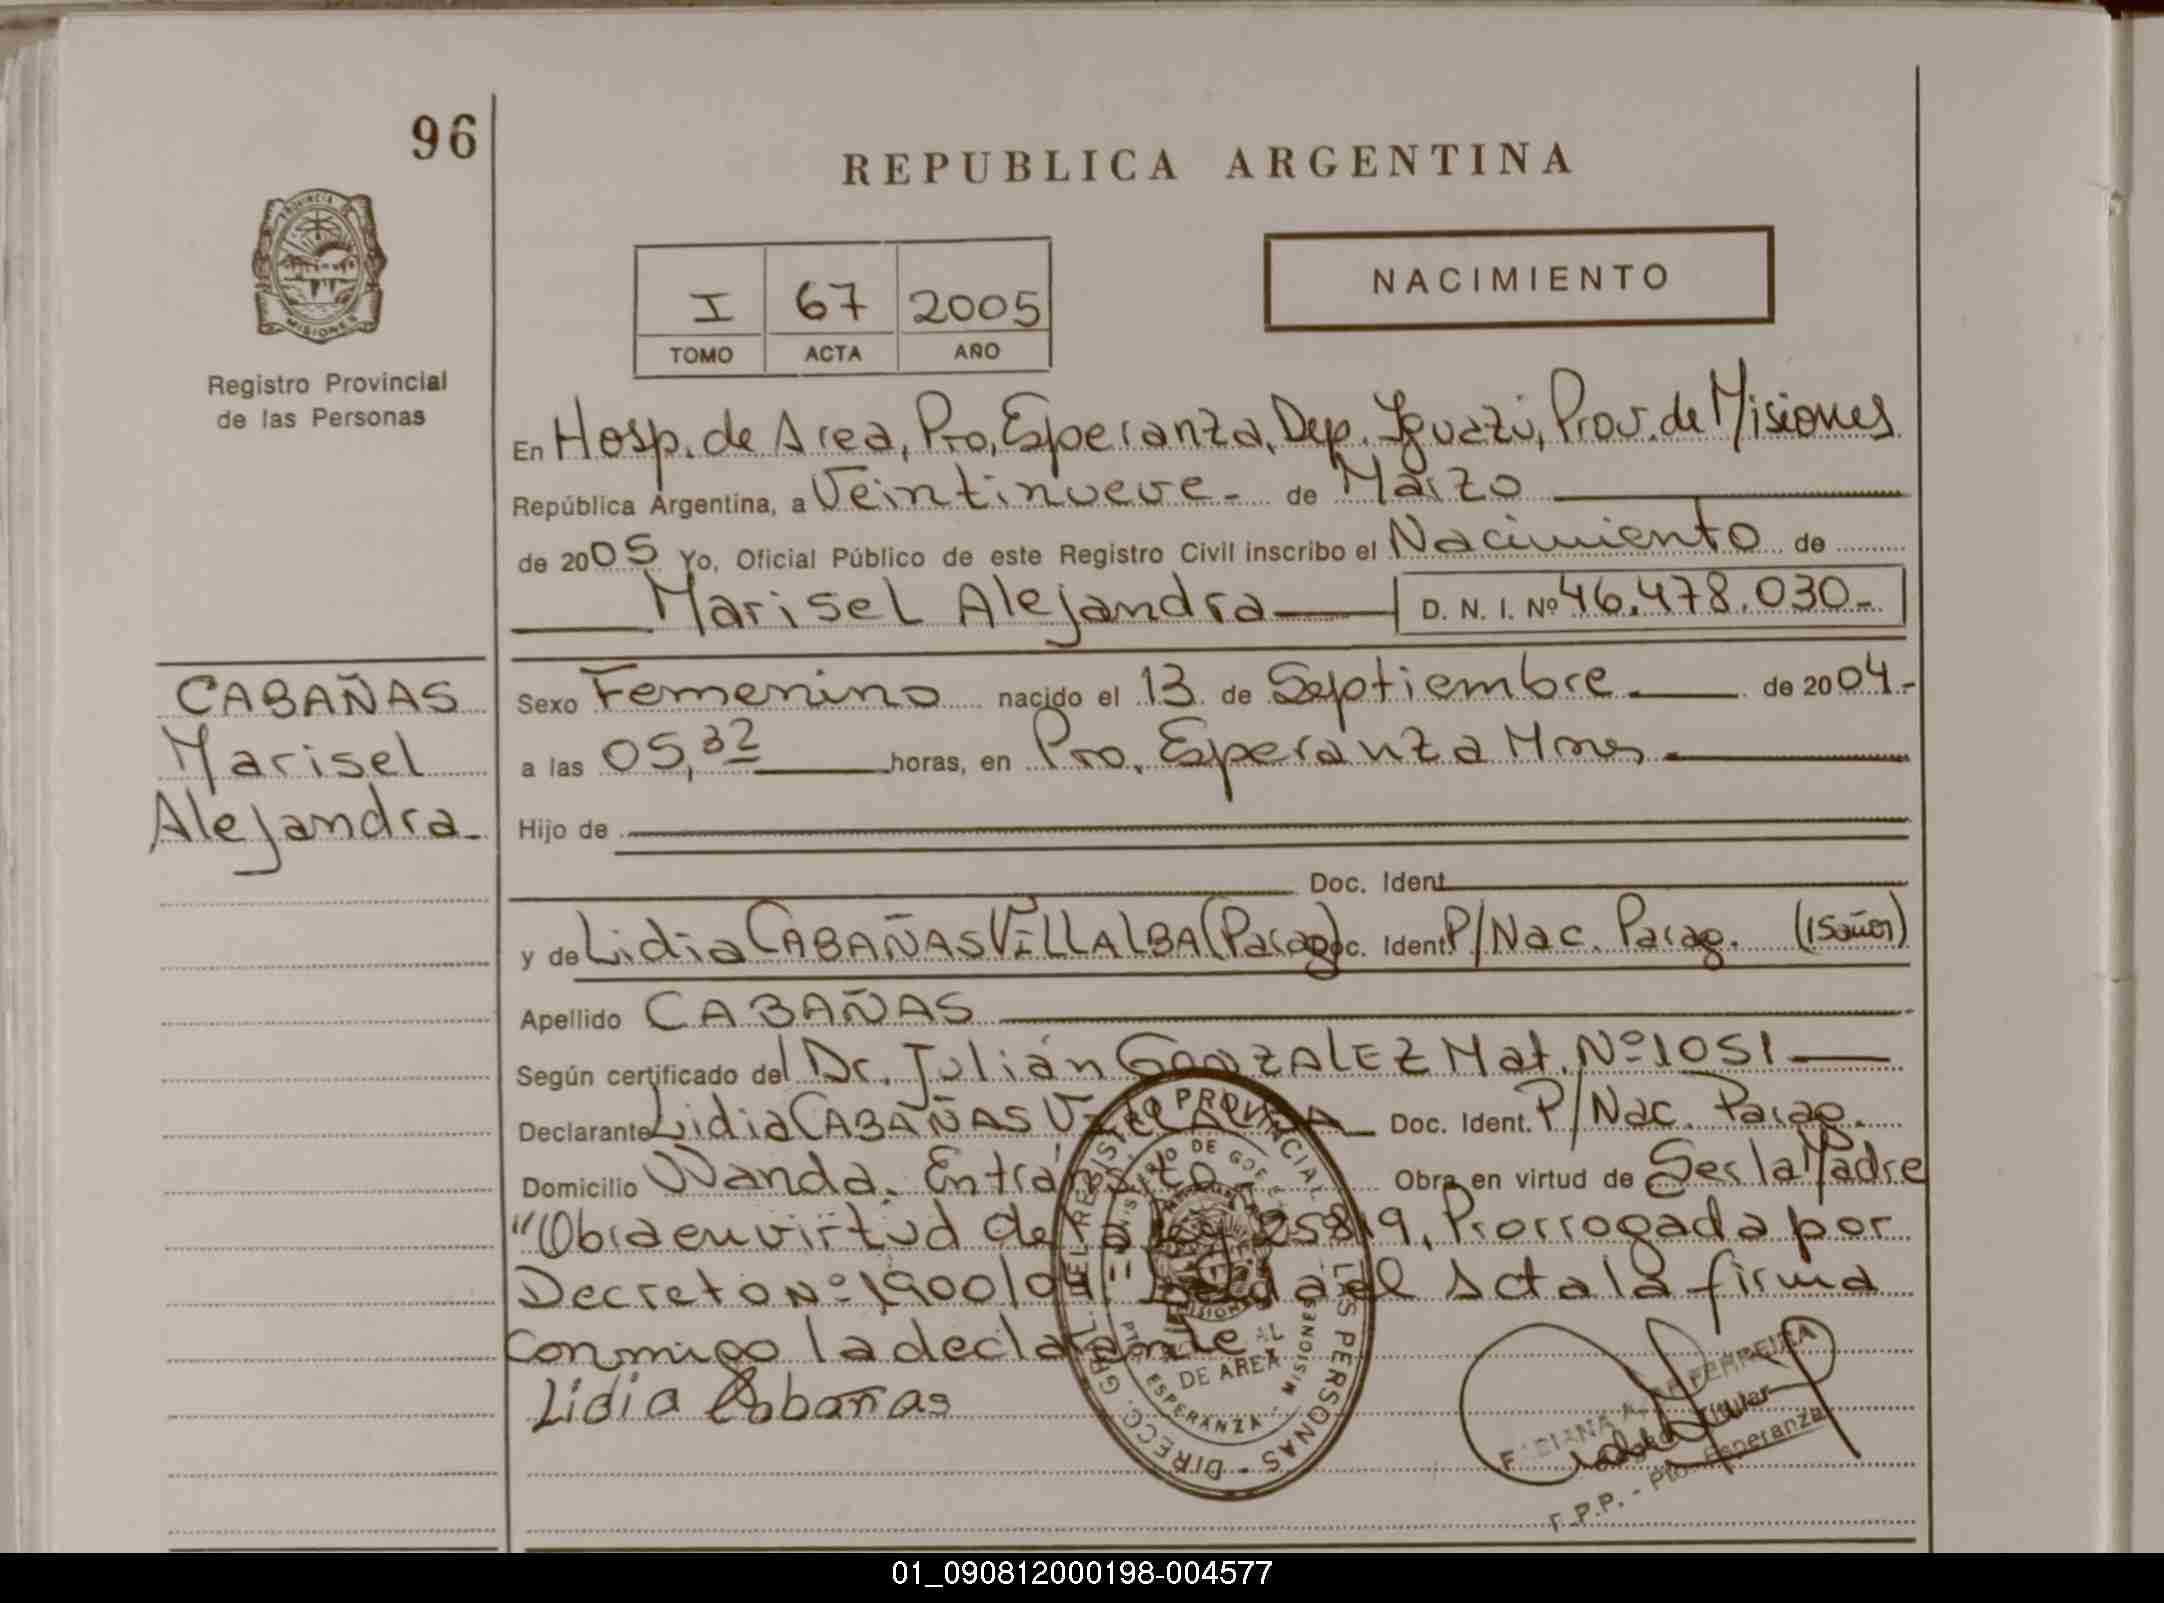 96
REPUBLICA ARGENTINA
PROVINCIA DE
MISIONES
Registro Provincial
de las Personas
I 67 2005
TOMO ACTA AÑO
NACIMIENTO
En Hosp. de Area, Pto, Esperanza, Dep. Iguazú, Prov. de Misiones
República Argentina, a Veintinueve - de Marzo
de 2005 Yo, Oficial Público de este Registro Civil inscribo el Nacimiento de
Marisel Alejandra D. N. I. Nº 46.478.030-
CABAÑAS
Marisel
Alejandra-
Sexo Femenino nacido el 13 de Septiembre de 2004.-
a las 05,32 horas, en Pto. Esperanza Mnes
Hijo de
Doc. Ident.
y de Lidia CABAÑAS VILLALBA (Parag) Doc. Ident. P/Nac. Parag. (15años)
Apellido CABAÑAS
Según certificado del Dr. Julián GONZALEZ Mat. Nº 1051
Declarante Lidia CABAÑAS VILLALBA Doc. Ident. P/Nac. Parag.
Domicilio Wanda. Entránsito - Obra en virtud de Ser la Madre
"Obra en virtud de la ley 25819, Prorrogada por
Decreto Nº 1900/04" Leida el Acta la firma
conmigo la declarante
Lidia Cabañas
DIRECC. GRAL. DEL REGISTRO PROVINCIAL DE LAS PERSONAS -
MINISTERIO DE GOB
MISIONES
DE AREA
ESPERANZA - MISIONES
FERREIRA
Titular
R.P.P. - Pto. Esperanza
01_090812000198-004577